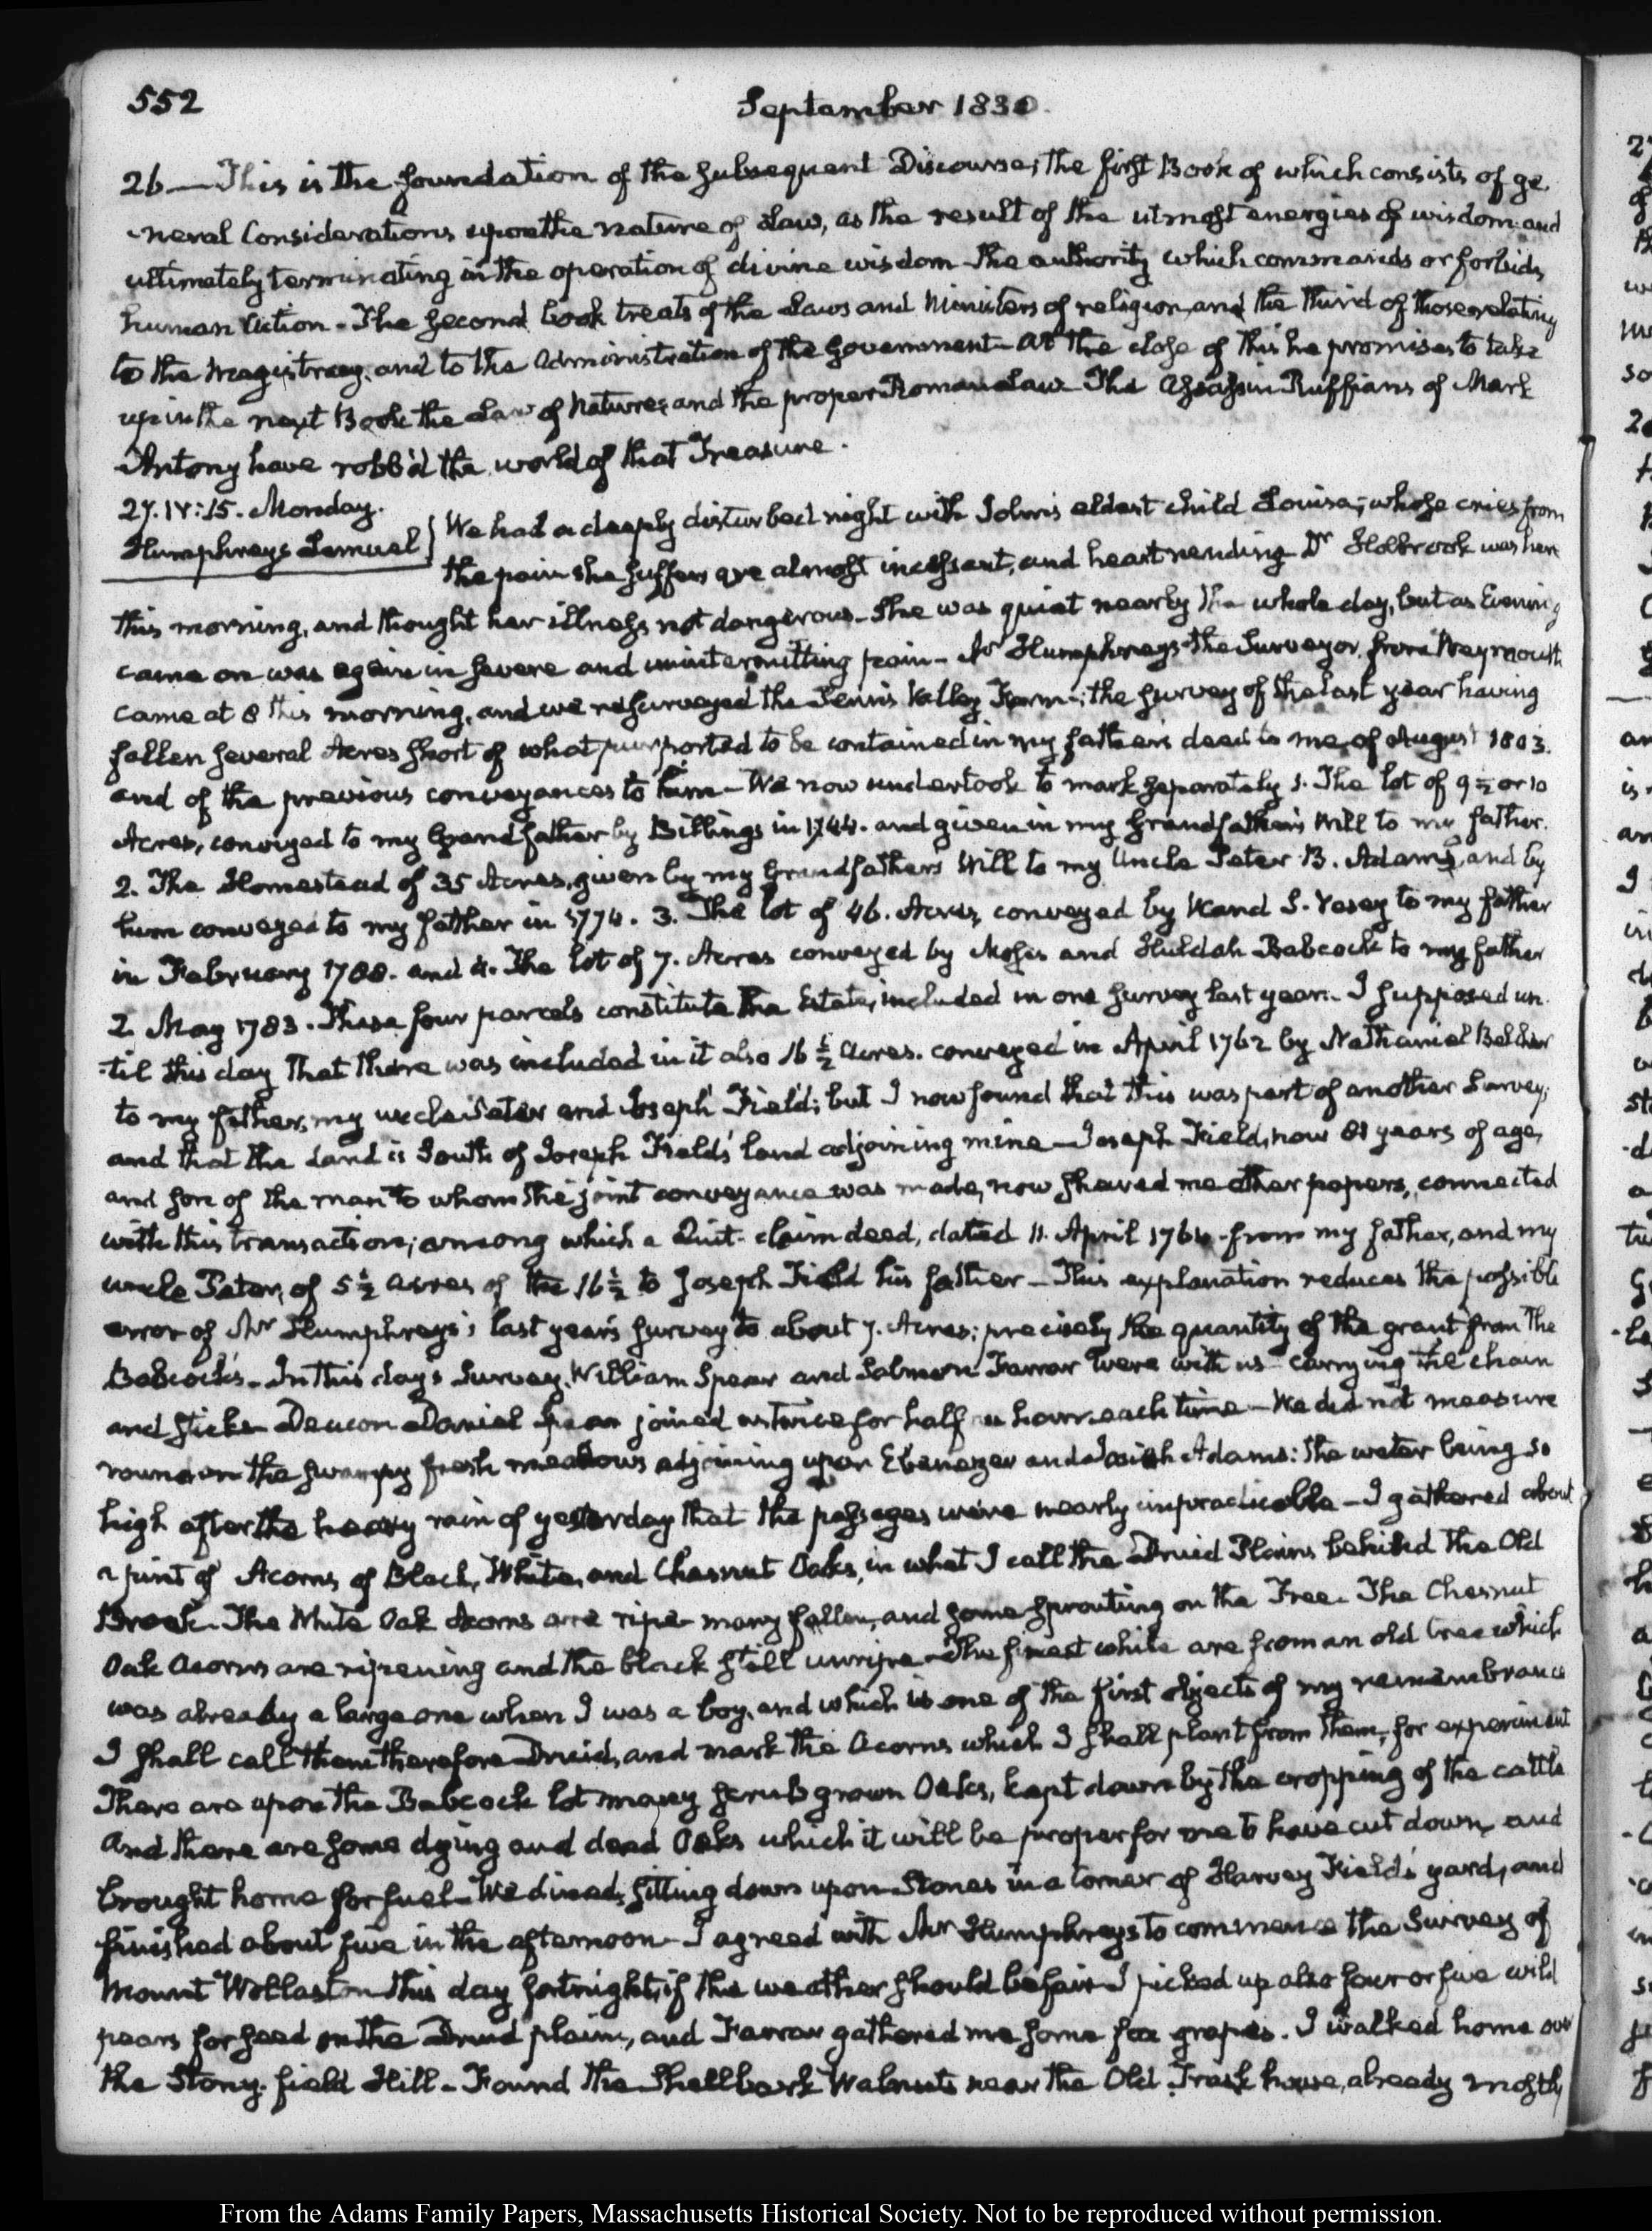 552
September 1830.
26 — This is the foundation of the subsequent Discourse; the first Book of which consists of ge-
-neral Considerations upon the nature of Law, as the result of the utmost energies of wisdom and
ultimately terminating in the operation of divine wisdom the authority which commands or forbids
human Action - The second book treats of the Laws and Ministers of religion, and the third of those relating
to the Magistracy, and to the administration of the Government - At the close of this he promises to take
up in the next Book the Law of Nature; and the proper Roman Law - The Assassin Ruffians of Mark
Antony have robb'd the world of that Treasure.
27. IV:15. Monday.
Humphreys Lemuel
We had a deeply disturbed night with John's eldest child Louisa; whose cries from
the pain she suffers are almost incessant, and heart rending Dr Holbrook was here
this morning, and thought her illness not dangerous - She was quiet nearly the whole day, but as Evening
came on was again in severe and unintermitting pain - Mr Humphreys the Surveyor, from Weymouth
came at 8 this morning, and we resurveyed the Penn's Valley Farm; the survey of the last year having
fallen several Acres short of what purported to be contained in my father's deed to me, of August 1803.
and of the previous conveyances to him - We now undertook to mark separately 1. The lot of 9 1/2 or 10
Acres, conveyed to my Grandfather by Billings in 1744. and given in my Grandfather's Will to my father.
2. The Homestead of 35 Acres, given by my Grandfather's Will to my Uncle Peter B. Adams, and by
him conveyed to my father in 1774. 3. The lot of 46. Acres, conveyed by and S. Vesey to my father
in February 1788. and 4. The lot of 7. Acres conveyed by Moses and Huldah Babcock to my father
2 May 1783. These four parcels constitute the Estate, included in one survey last year - I supposed un-
-til this day that there was included in it also 16 1/2 Acres. conveyed in April 1762 by Nathaniel Belcher
to my father, my uncle Peter and Joseph Field; but I now found that this was part of another Survey;
and that the Land is South of Joseph Field's land adjoining mine - Joseph Field, now 81 years of age,
and son of the man to whom the joint conveyance was made, now shewed me other papers, connected
with this transaction; among which a Quit-claim deed, dated 11. April 1764 - from my father, and my
uncle Peter, of 5 1/2 acres of the 16 1/2 to Joseph Field his father - This explanation reduces the possible
error of Mr Humphreys's last year's survey to about 7. Acres; precisely the quantity of the grant from the
Babcock's - In this day's Survey, William Spear and Salmon Farrar were with us - carrying the chain
and sticks - Deacon Daniel Spear joined us twice for half an hour each time - We did not measure
round on the swampy fresh meadows adjoining upon Ebenezer and Josiah Adams: the water being so
high after the heavy rain of yesterday that the passages were nearly impracticable - I gathered about
a pint of Acorns of Black, White, and Chesnut Oaks, in what I call the Druid Plains behind the Old
Brook - The White Oak Acorns are ripe - many fallen, and some sprouting on the Tree - The Chesnut
Oak acorns are ripening and the black still unripe - The finest white are from an old tree which
was already a large one when I was a boy, and which is one of the first objects of my remembrance
I shall call them therefore Druids, and mark the Acorns which I shall plant from them, for experiment
There are upon the Babcock lot many scrub grown Oaks, kept down by the cropping of the cattle
And there are some dying and dead Oaks which it will be proper for me to have cut down, and
brought home for fuel - We dined, sitting down upon Stones in a corner of Harvey Field's yard, and
finished about five in the afternoon - I agreed with Mr Humphreys to commence the Survey of
Mount Wollaston this day fortnight, if the weather should be fair - I picked up also four or five wild
pears for seed on the Druid plain, and Farrar gathered me some fox grapes. I walked home over
the Stony-field Hill - Found the Shellbark Walnuts near the Old Trask house, already mostly
From the Adams Family Papers, Massachusetts Historical Society. Not to be reproduced without permission.